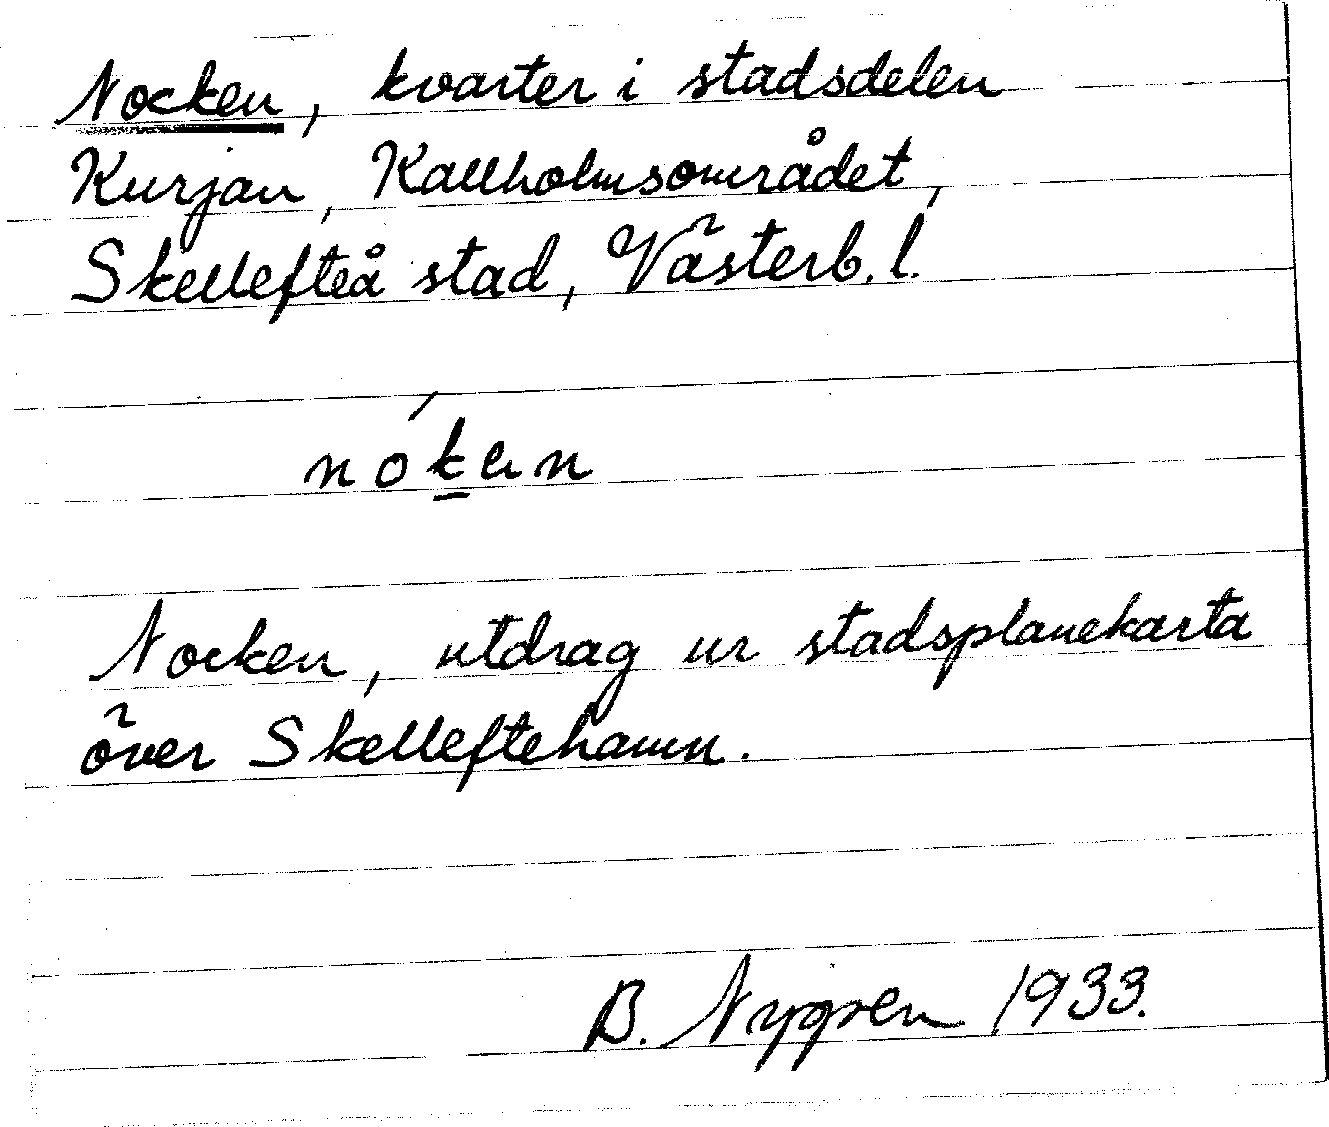 Nocken, kvarter i stadsdelen
Kurjan, Kallholmsområdet,
Skellefteå stad, Västerb. l.
nók̲en
Nocken, utdrag ur stadsplanekarta
över Skelleftehamn.
B. Nygren 1933.